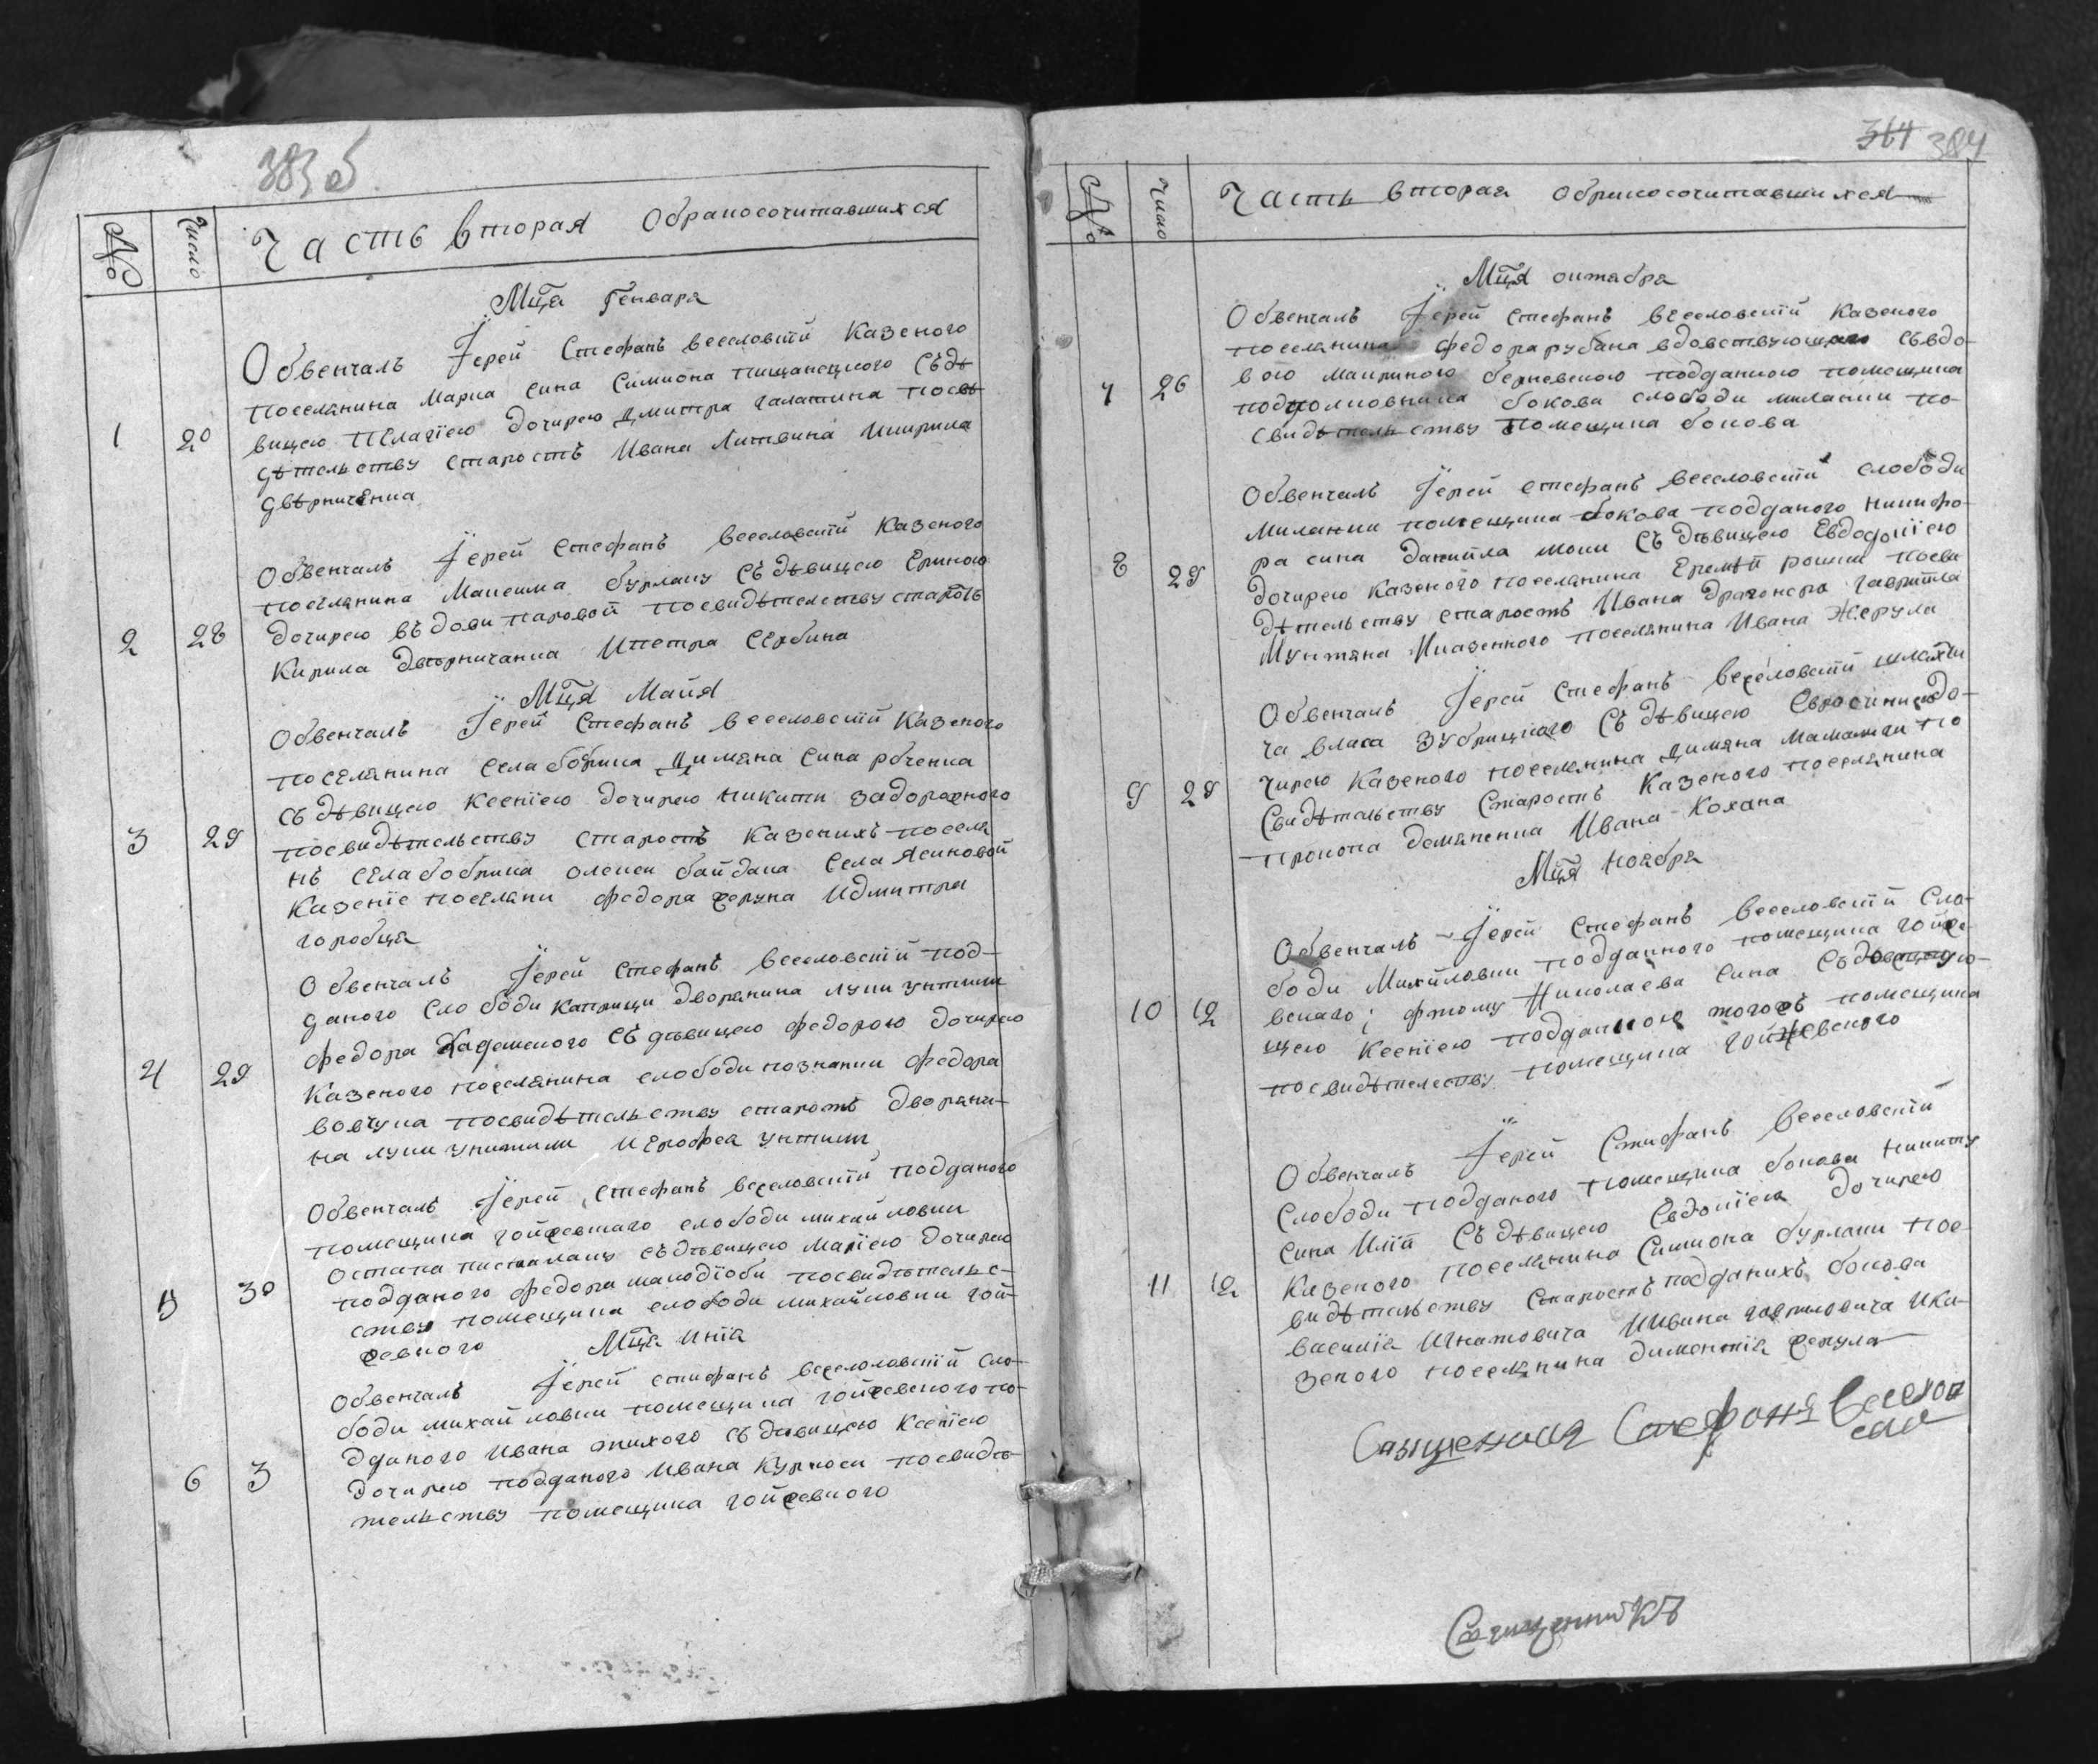 383 об
№ Число Часть вторая обракосочитавшихся
Мця Генваря
Обвенчалъ Іерей Стефанъ веселовскій Казеного
поселянина Марка сина Симиона пищанецкого Съдѣ
1 20 вицею Пелагіею дочирею дмитра галатина посви
дѣтельству старостъ Ивана Литвина Икирила
двѣрниченка
Обвенчалъ Іерей Стефанъ Веселовскій Казеного
поселянина Максима бурлаку Съдѣвицею Ериною
2 28 дочирею въдови паровой посвидѣтелству старостъ
Кирила Дворничанка Ипетра Сербина
Мця Майя
Обвенчалъ Іерей Стефанъ веселовскій Казеного
поселянина села бобрика димяна сина
съ дѣвицею Ксеніею дочирею никити задорожного
3 29 посвидѣтельству старостъ казенихъ поселя
нъ села бобрика олекси байдака села Ясиновой
Казеніе поселяни федора Идмитра
горобця
Обвенчалъ Іерей Стефанъ веселовскій под-
даного слободи каприци дворянина луки
федора съ дѣвицею федорою дочирею
4 29 Казеного поселянина слободи познанки федора
вовчука посвидѣтельству старостъ дворяни-
на луки Иерофея
Обвенчалъ Іерей Стефанъ веселовскій подданого
помещика гойжевского слободи михайловки
остапа съдѣвицею Маріею дочирею
5 30 подданого федора посвидѣтельс-
ству помещика слободи михайловки гой-
жевкого
Мця
Обвенчалъ Іерей стифанъ веселоловскій сло-
боди михайловки помещика гойжевского по-
дданого Ивана тихого съ дѣвицею Ксеніею
6 3 дочирею подданого Ивана Курноси посвидѣ-
тельству помещика гойжевкого
364 384
№ Число Часть вторая обракосочитавшихся
Мця октабра
Обвенчалъ Іерей стефанъ веселовскій Казеного
поселянина федора рубана вдовствующаго съвдо-
7 26 вою подданною помещика
подполковника бокова слободи миланки по-
свидѣтельству помещика бокова
Обвенчалъ Іерей стефанъ веселовскій слободи
миланки помещика бокова подданого никифо-
8 29 ра сина данііла Съдѣвицею Евдокіею
дочирею казеного поселянина посви
дѣтельству старостъ Ивана драгонера гавриіла
Мунтяна Иказенного поселянина Ивана Жерула
Обвенчалъ Іерей стефанъ веселовскій шляхти
ча власа зубрицкого Съ дѣвицею до-
9 29 чирею казеного поселянина димяна по
Свидѣтельству Старостъ казеного поселянина
прокопа демяненка Ивана Кохана
Мця ноября
Обвенчалъ Іерей Стефанъ Веселовскій Сло-
боди Михиловки подданного помещика гойже-
10 12 вскаго; фтому Николаева сина
щею Ксеніею подданною тогожъ помещика
посвидѣтелству помещика гойжевского
Обвенчалъ Іерей Стифанъ Веселовскій
Слободи подданого помещика бокова никиту
сина Иліи Съ дѣвицею Евдокіею дочирею
11 12 Казеного поселянина Симиона бурлаки пос-
видѣтельству старостъ подданихъ бокова
василія Игнатовича Ивана гавриловича Ика-
зеного поселянина диментія жерула
Священикъ Стефанъ Веселов
ски
Священникъ